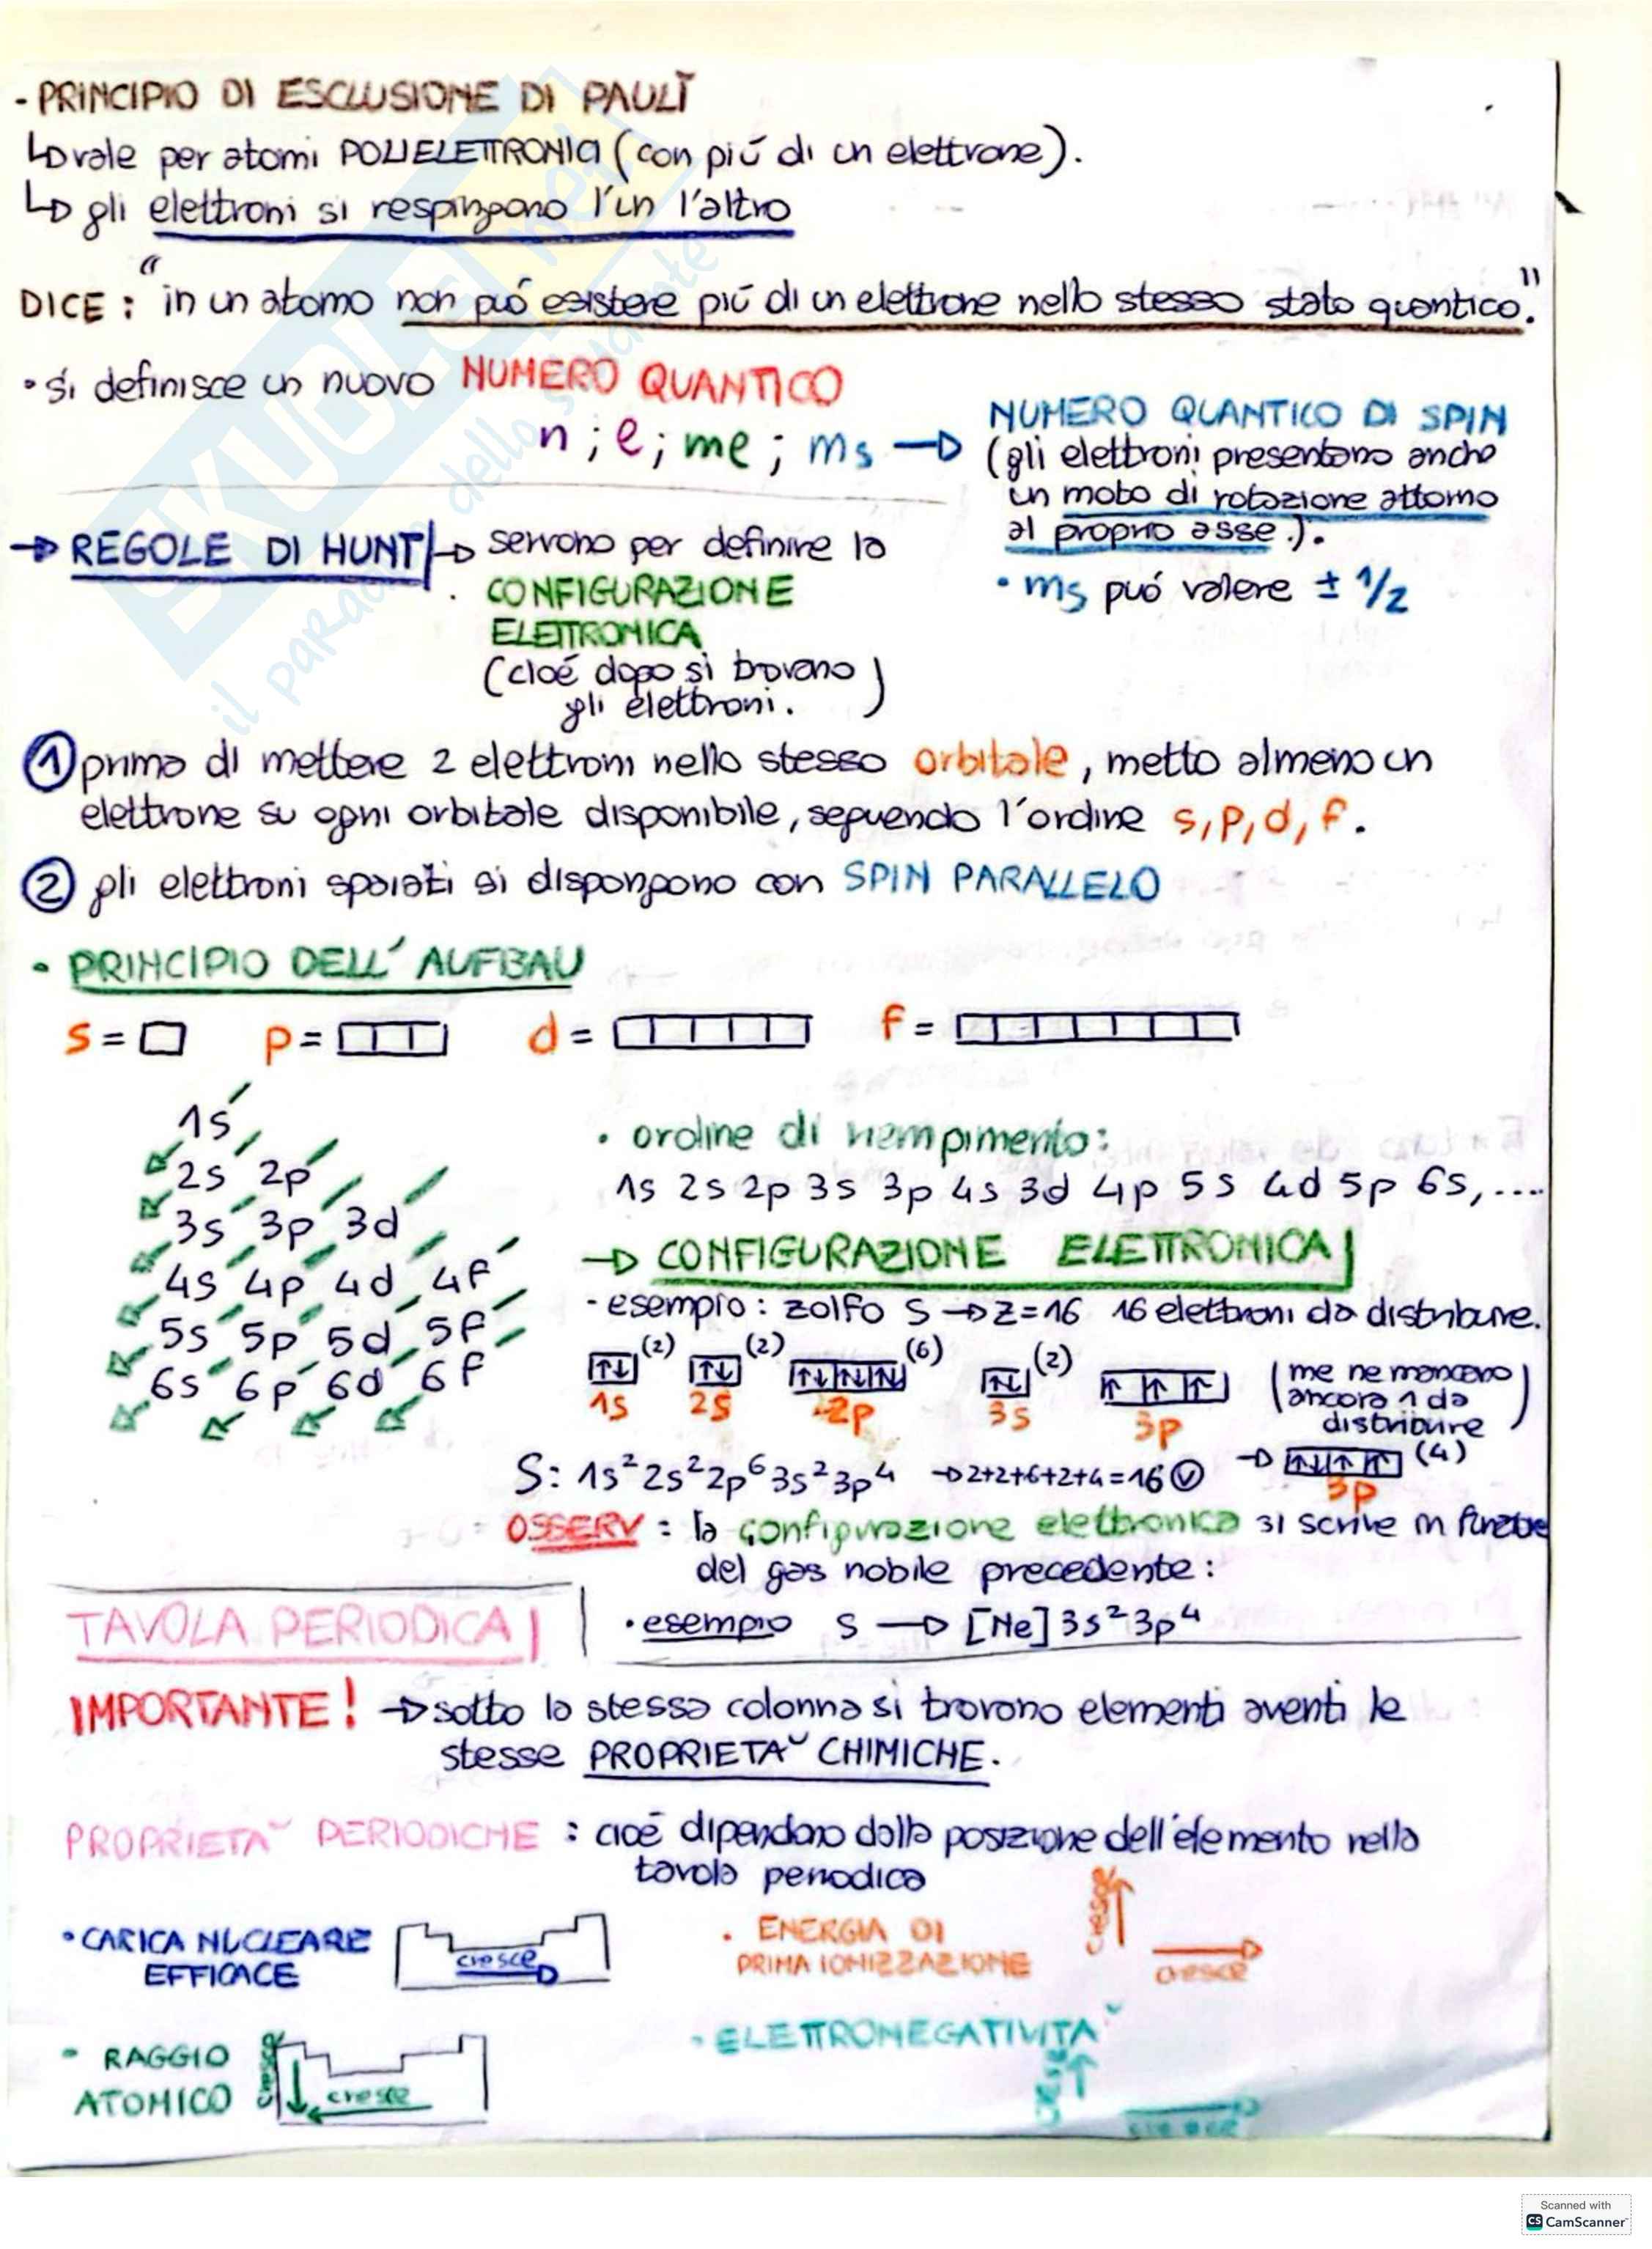 - PRINCIPIO DI ESCLUSIONE DI PAULI
↳ vale per atomi POLIELETTRONICI (con piú di un elettrone).
↳ gli elettroni si respingono l'un l'altro
DICE : "in un atomo non puó esistere piú di un elettrone nello stesso stato quantico".
• si definisce un nuovo NUMERO QUANTICO
n ; l ; ml ; ms → NUMERO QUANTICO DI SPIN
(gli elettroni presentano anche
un moto di rotazione attorno
al proprio asse.).
• ms puó valere ± 1/2
→ REGOLE DI HUNT → servono per definire la
CONFIGURAZIONE
ELETTRONICA
(cioé dopo si trovano
gli elettroni.)
① prima di mettere 2 elettroni nello stesso orbitale, metto almeno un
elettrone su ogni orbitale disponibile, seguendo l'ordine s, p, d, f.
② gli elettroni spaiati si dispongono con SPIN PARALLELO
• PRINCIPIO DELL' AUFBAU
s = p = d = f =
1s
2s 2p
3s 3p 3d
4s 4p 4d 4f
5s 5p 5d 5f
6s 6p 6d 6f
• ordine di riempimento:
1s 2s 2p 3s 3p 4s 3d 4p 5s 4d 5p 6s, ....
→ CONFIGURAZIONE ELETTRONICA
- esempio : zolfo S → Z=16 16 elettroni da distribuire.
↑↓ (2) ↑↓ (2) ↑↓ ↑↓ ↑↓ (6) ↑↓ (2) ↑ ↑ ↑
1s 2s 2p 3s 3p
(me ne mancano
ancora 1 da
distribuire)
→ ↑↓ ↑ ↑ (4)
3p
S: 1s² 2s² 2p⁶ 3s² 3p⁴ → 2+2+6+2+4=16 ✓
OSSERV : la configurazione elettronica si scrive in funzione
del gas nobile precedente :
• esempio S → [Ne] 3s² 3p⁴
TAVOLA PERIODICA
IMPORTANTE! → sotto la stessa colonna si trovano elementi aventi le
stesse PROPRIETA' CHIMICHE.
PROPRIETA' PERIODICHE : cioé dipendono dalla posizione dell'elemento nella
tavola periodica
• CARICA NUCLEARE
EFFICACE
cresce
• ENERGIA DI
PRIMA IONIZZAZIONE
cresce
cresce
• RAGGIO
ATOMICO
cresce
cresce
• ELETTRONEGATIVITA'
cresce
SKUOLA.net
il paradiso dello studente
Scanned with
CS CamScanner